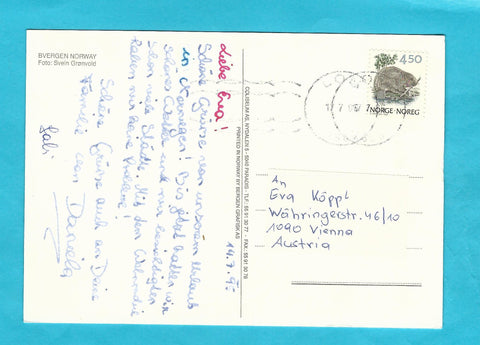 BVERGEN NORWAY
Foto: Svein Grønvold
Liebe Eva!
Schöne Grüße von unserem Urlaub
in Norwegen! Bis jetzt hatten wir
schönes Wetter und wir
schon viele Städte. Mit dem
haben wir keine Probleme!
Schöne Grüße auch an Deine
Familie von Daniela
Gabi
14.7.95
COLIBERIUM AS, NYDALEN 5 - 5040 PARADIS - TLF.: 55 91 30 77 - FAX: 55 91 30 79
PRINTED IN NORWAY BY BERGEN GRAFISK AS
4.50
NORGE·NOREG
An
Eva Köppl
Währingerstr. 46/10
1090 Vienna
Austria